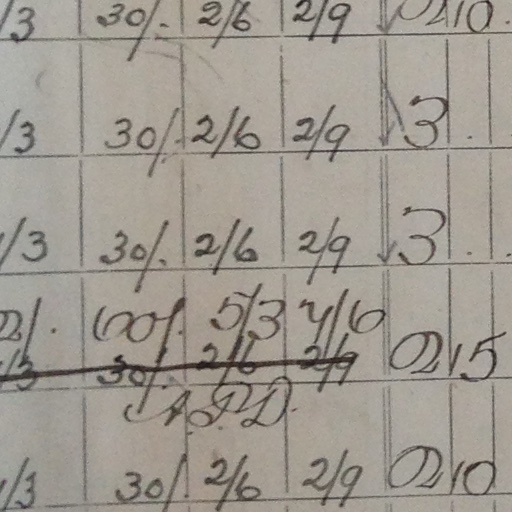 /3 30/- 2/6 2/9 210.
/3 30/- 2/6 2/9 3 .
/3 30/- 2/6 2/9 3 . .
2/- 60/- 5/3 7/6
/3 30/- 2/6 2/9 215
A.P.D.
/3 30/- 2/6 2/9 210